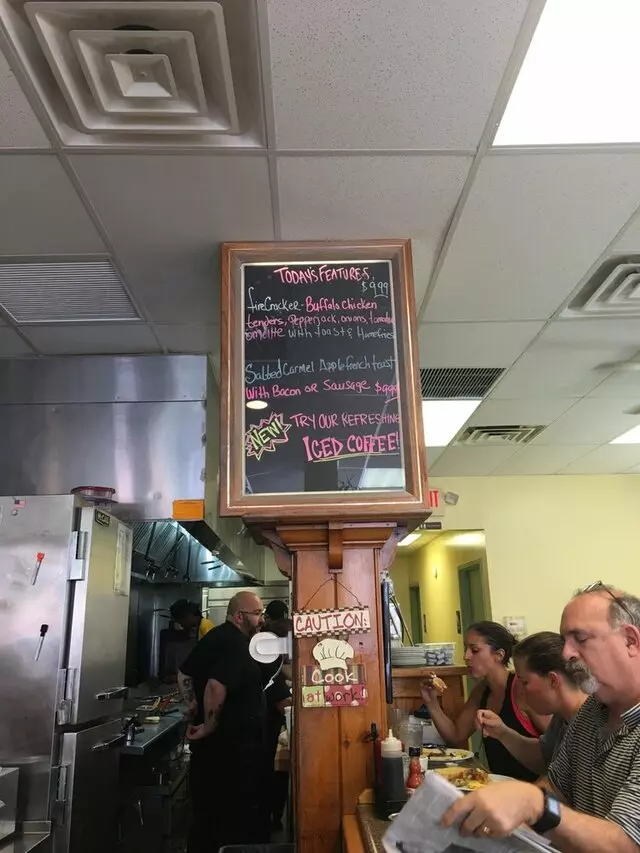 TODAY'S FEATURES
$9.99
fireCracker - Buffalo Chicken
tenders, Pepperjack, onions, tomato
omelette with toast & Homefries
Salted Carmel Apple french toast
With Bacon OR Sausage $9.99
NEW!
TRY OUR REFRESHING
ICED COFFEE!
CAUTION:
Cook
at work!